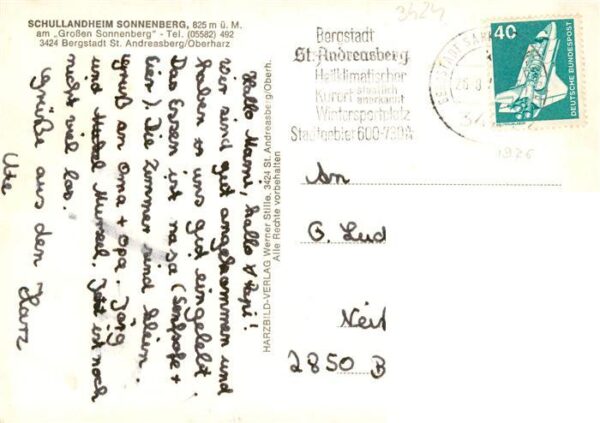 SCHULLANDHEIM SONNENBERG, 825 m ü. M.
am „Großen Sonnenberg" - Tel. (05582) 492
3424 Bergstadt St. Andreasberg/Oberharz
Hallo Mami, hallo Papi!
Wir sind gut angekommen und
haben uns gut eingelebt.
Das Essen ist na ja (Senfsoße +
Eier). Die Zimmer sind klein.
Gruß an Oma + Opa. Jörg
und Muckel. Jetzt ist noch
nicht viel los.
Grüße aus dem Harz
Ute
HARZBILD-VERLAG Werner Stille, 3424 St. Andreasberg/Oberh.
Alle Rechte vorbehalten
3424
Bergstadt
St. Andreasberg
Heilklimatischer
Kurort staatlich anerkannt
Wintersportplatz
Skigebiet 600-730m
BERGSTADT
40
DEUTSCHE BUNDESPOST
1926
An
G. Lud
2850 B